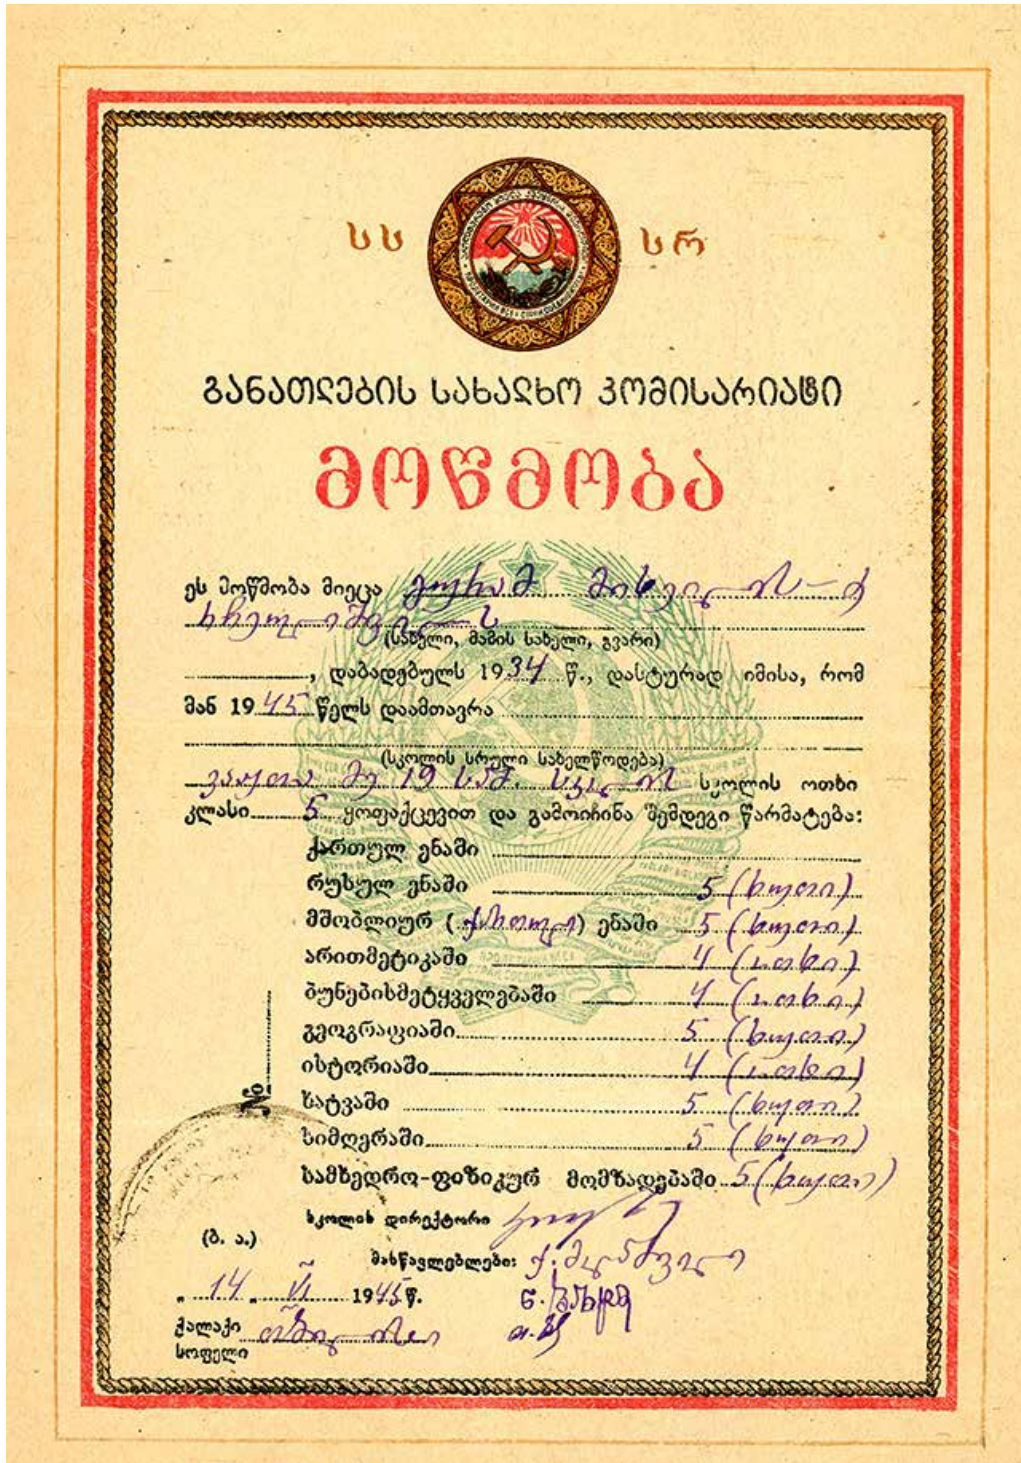 სს სრ
განათლების სახალხო კომისარიატი
მოწმობა
ეს მოწმობა მიეცა გურამ მიხეილის-ძე
(სახელი, მამის სახელი, გვარი)
, დაბადებულს 1934 წ., დასტურად იმისა, რომ
მან 1945 წელს დაამთავრა
(სკოლის სრული სახელწოდება)
ვაჟთა მე 19 საშ. სკოლის სკოლის ოთხი
კლასი 5 ყოფაქცევით და გამოიჩინა შემდეგი წარმატება:
ქართულ ენაში
რუსულ ენაში 5 (ხუთი)
მშობლიურ (ქართულ) ენაში 5 (ხუთი)
არითმეტიკაში 4 (ოთხი)
ბუნებისმეტყველებაში 4 (ოთხი)
გეოგრაფიაში 5 (ხუთი)
ისტორიაში 4 (ოთხი)
ხატვაში 5 (ხუთი)
სიმღერაში 5 (ხუთი)
სამხედრო-ფიზიკურ მომზადებაში 5 (ხუთი)
№
სკოლის დირექტორი
(ბ. ა.)
მასწავლებლები:
„ 14 „ VI 1945 წ.
ქალაქი თბილისი
სოფელი